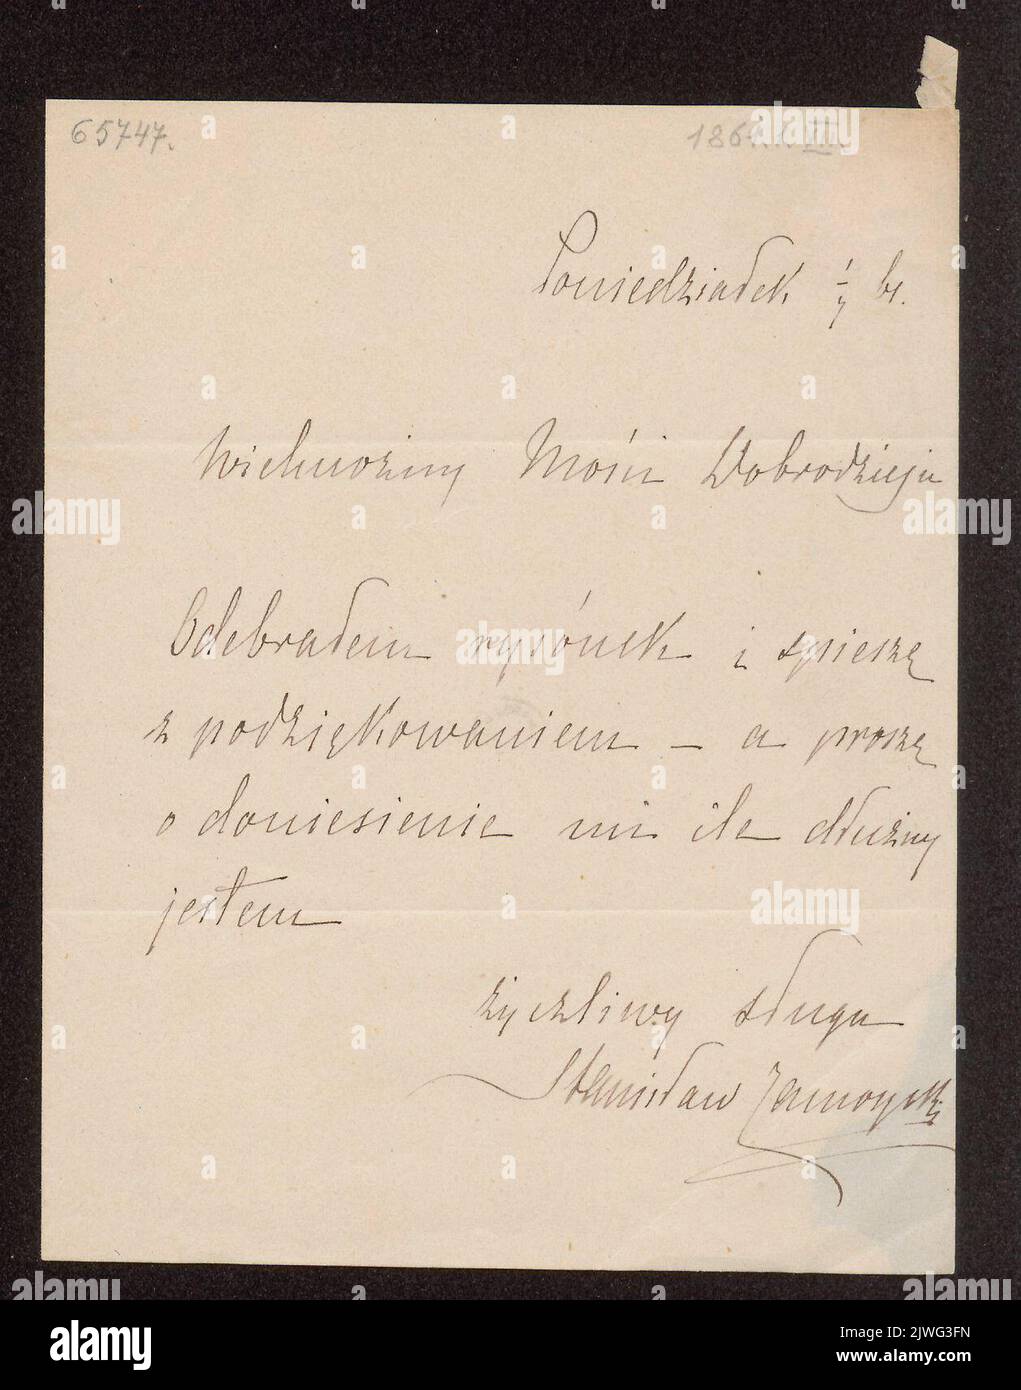 65747.
III
Poniedziałek 1/7 br.
Wielmożny Mości Dobrodzieju
Odebrałem rysónek i spieszę
z podziękowaniem – a proszę
o doniesienie mi ile dłużny
jestem
życzliwy sługa
Stanisław Zamoyski
alamy
Image ID: 2JWG3FN
www.alamy.com